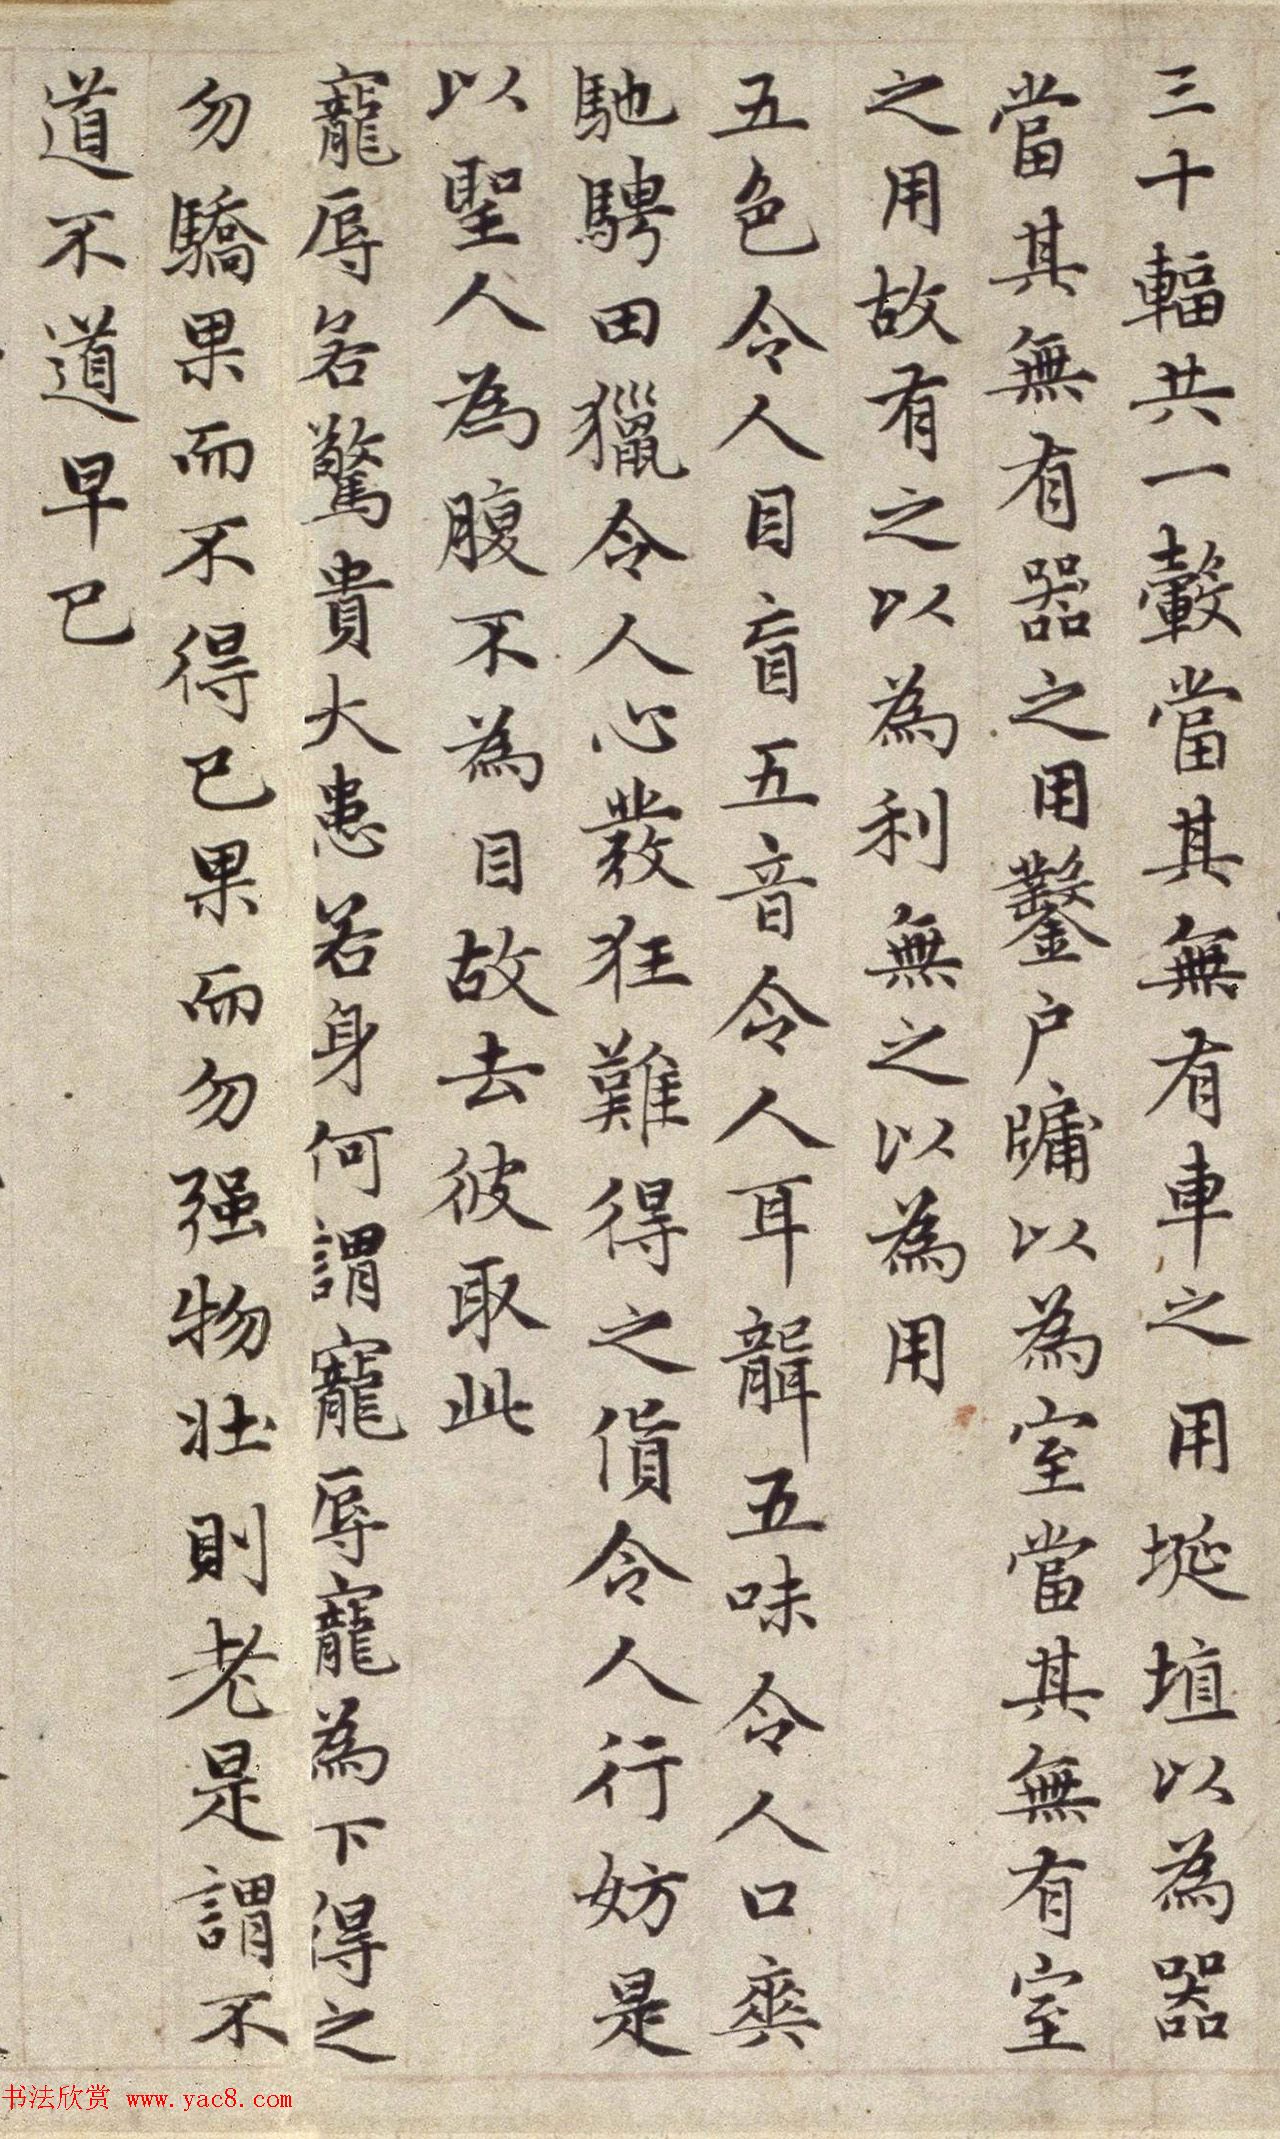 三十輻共一轂當其無有車之用埏埴以為器
當其無有器之用鑿户牖以為室當其無有室
之用故有之以為利無之以為用
五色令人目盲五音令人耳聾五味令人口爽
馳騁田獵令人心發狂難得之貨令人行妨是
以聖人為腹不為目故去彼取此
寵辱若驚貴大患若身何謂寵辱寵為下得之
勿驕果而不得已果而勿强物壯則老是謂不
道不道早已
书法欣赏 www.yac8.com